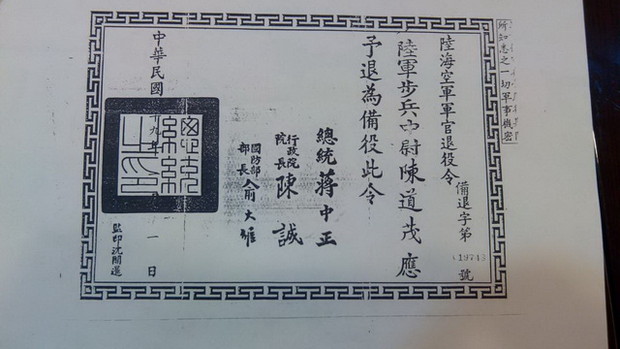 所知悉之一切軍事機密
陸海空軍軍官退役令
備退字第 號
陸軍步兵中尉陳道茂應
予退為備役此令
總統 蔣中正
行政院院長 陳誠
國防部部長 俞大維
總統之印
中華民國 十九年 一日
監印沈